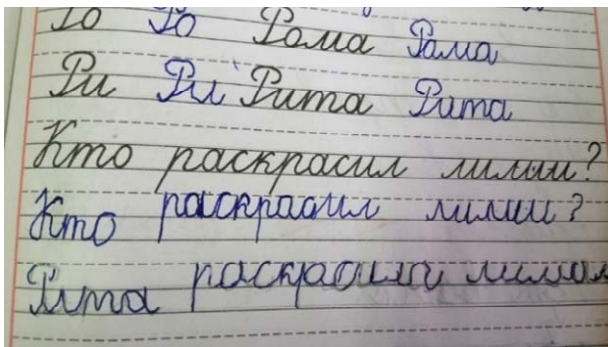 Ро Ро Рома Рома
Ри Ри Рита Рита
Кто раскрасил лилии?
Кто раскрасил лилии?
Рита раскрасила